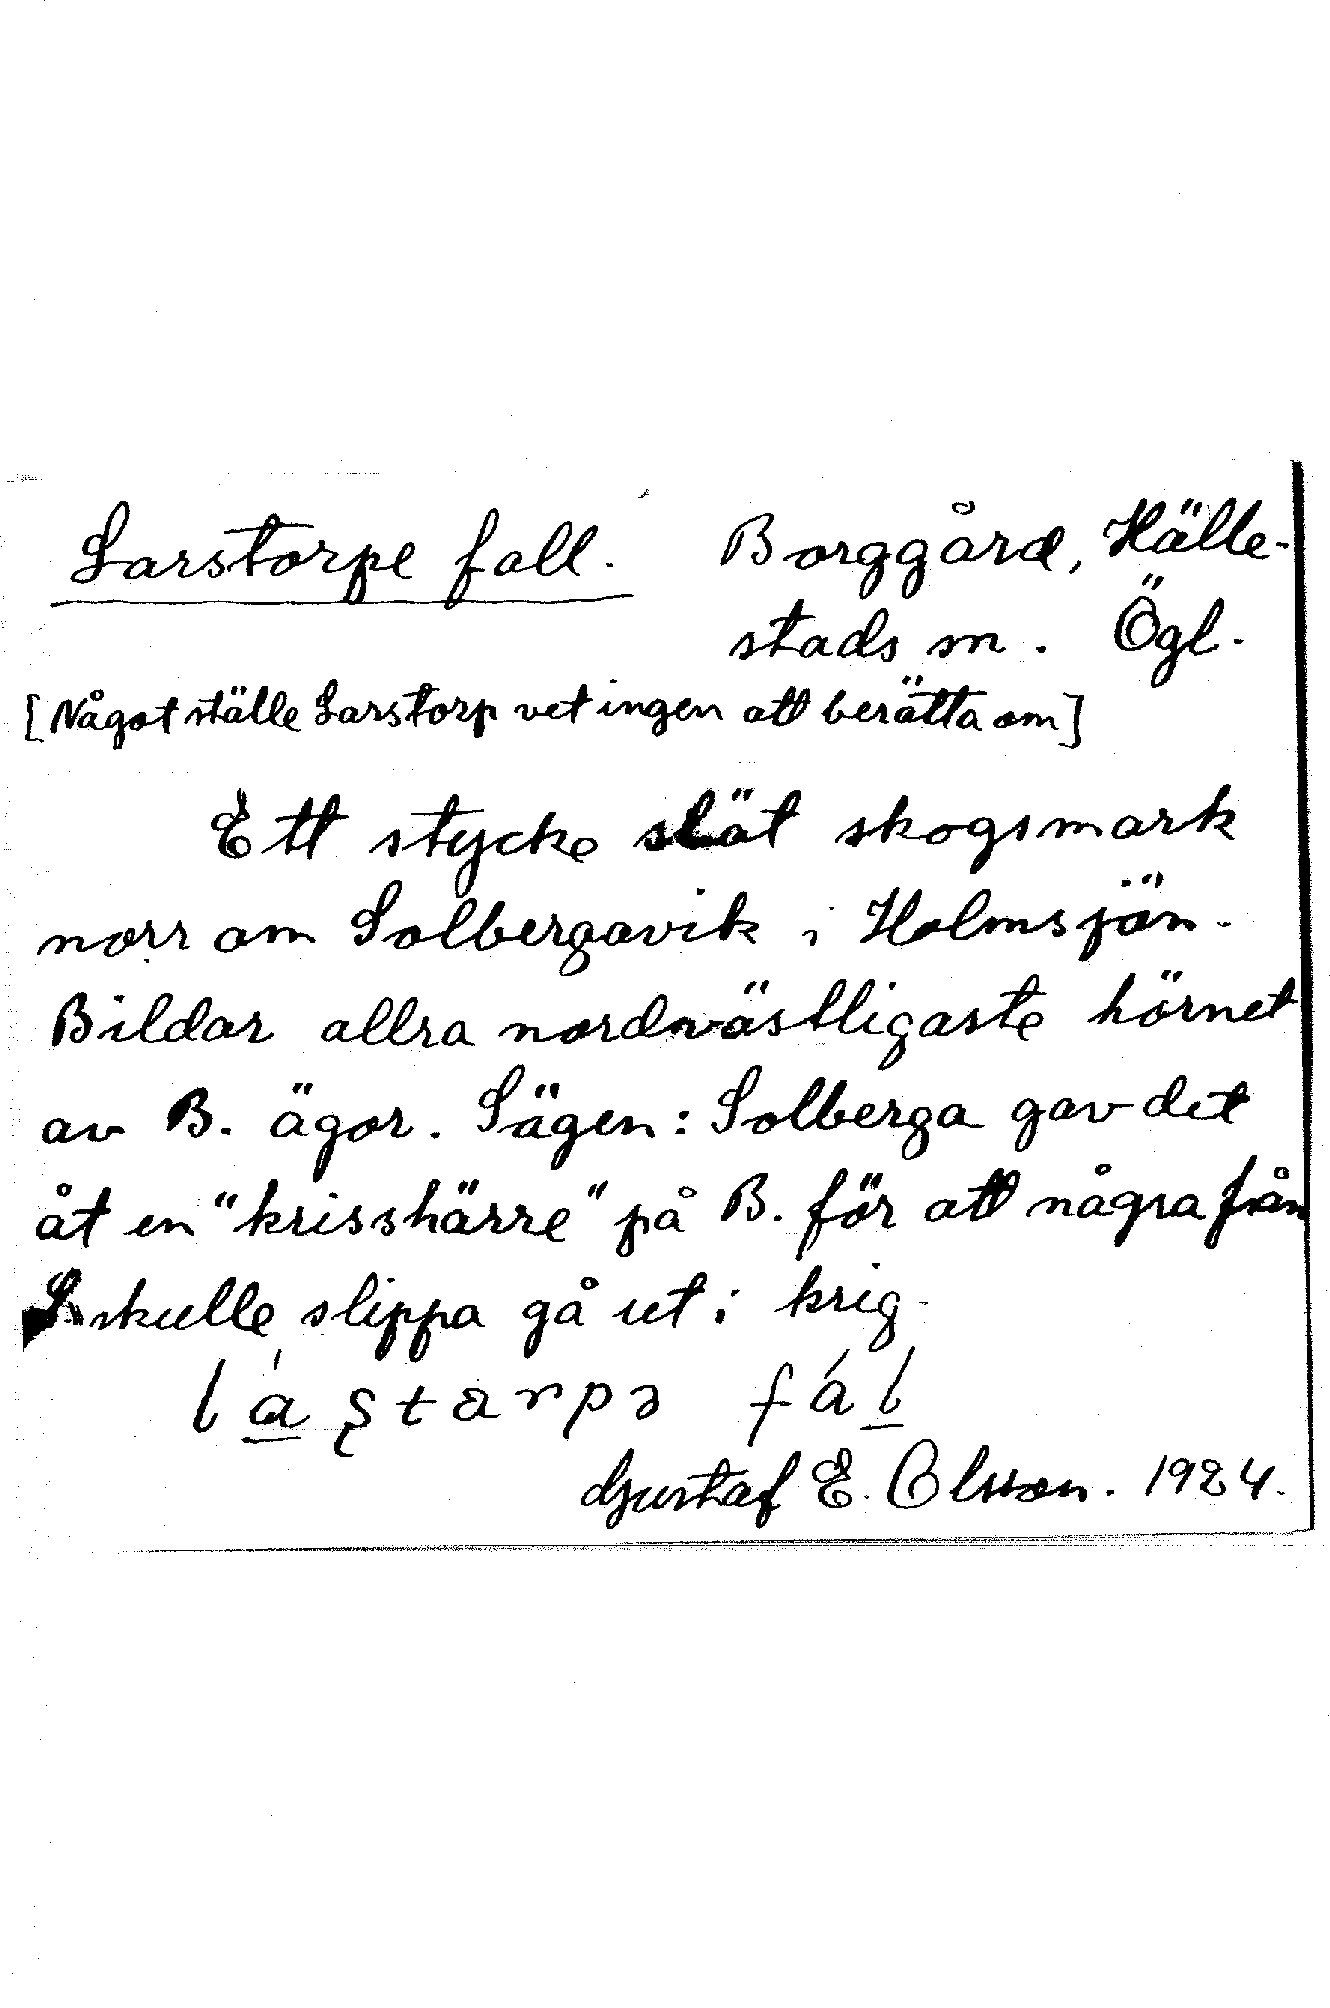 Larstorpe fall. Borggård, Hälle-
stads sn. Ögl.
[Något ställe Larstorp vet ingen att berätta om]
Ett stycke slät skogsmark
norr om Solbergavik i Holmsjön.
Bildar allra nordvästligaste hörnet
av B. ägor. Sägen: Solberga gav det
åt en "krisshärre" på B. för att några från
S. skulle slippa gå ut i krig
Gustaf E. Olsson. 1924.